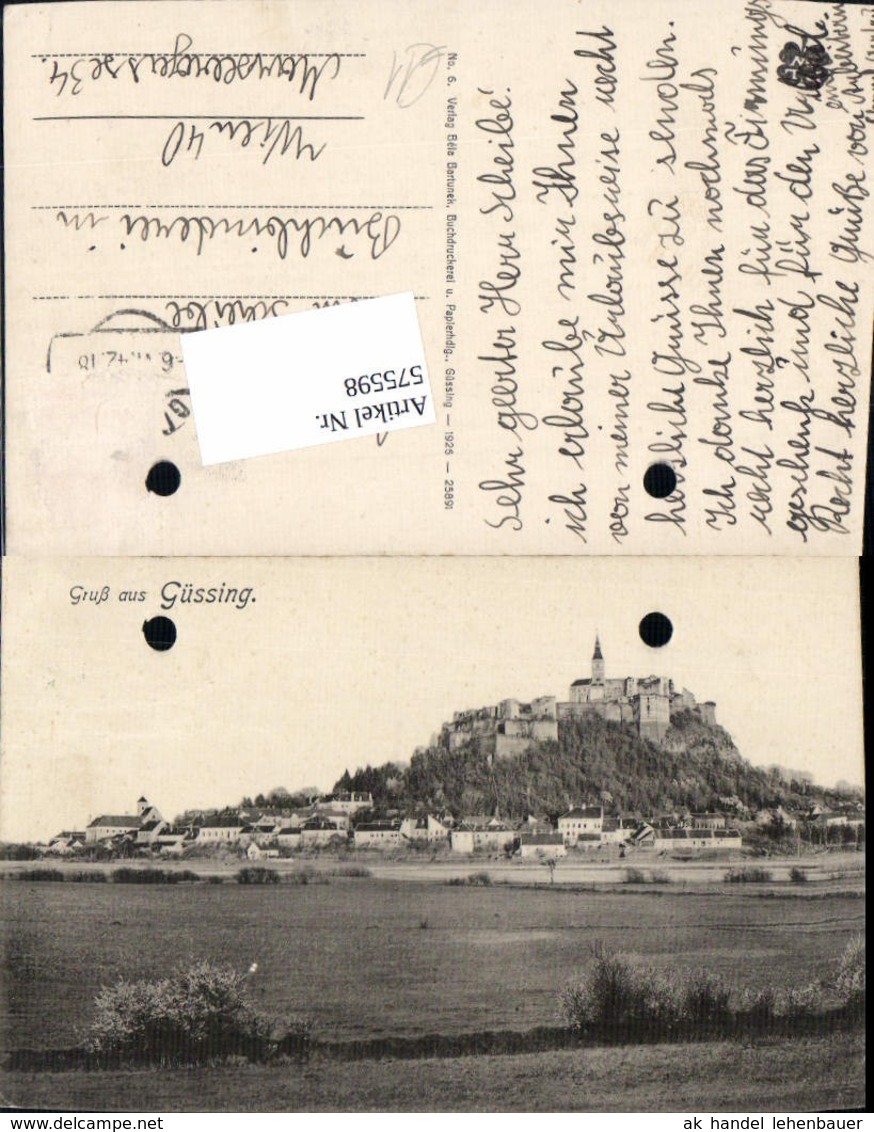 Sehr geerter Herr Scheibe!
ich erlaube mir Ihnen
von meiner Urlaubsreise recht
herzliche Grüsse zu senden.
Ich danke Ihnen nochmals
recht herzlich für das Firmüngs
geschenk und für den Urlaub.
Recht herzliche Grüße von
No. 6. Verlag Béla Bartunek, Buchdruckerei u. Papierhdlg., Güssing — 1925 — 25891
Scheibe
Buchbinderei in
Wien 40
34.
Artikel Nr.
575598
Gruß aus Güssing.
ak handel lehenbauer